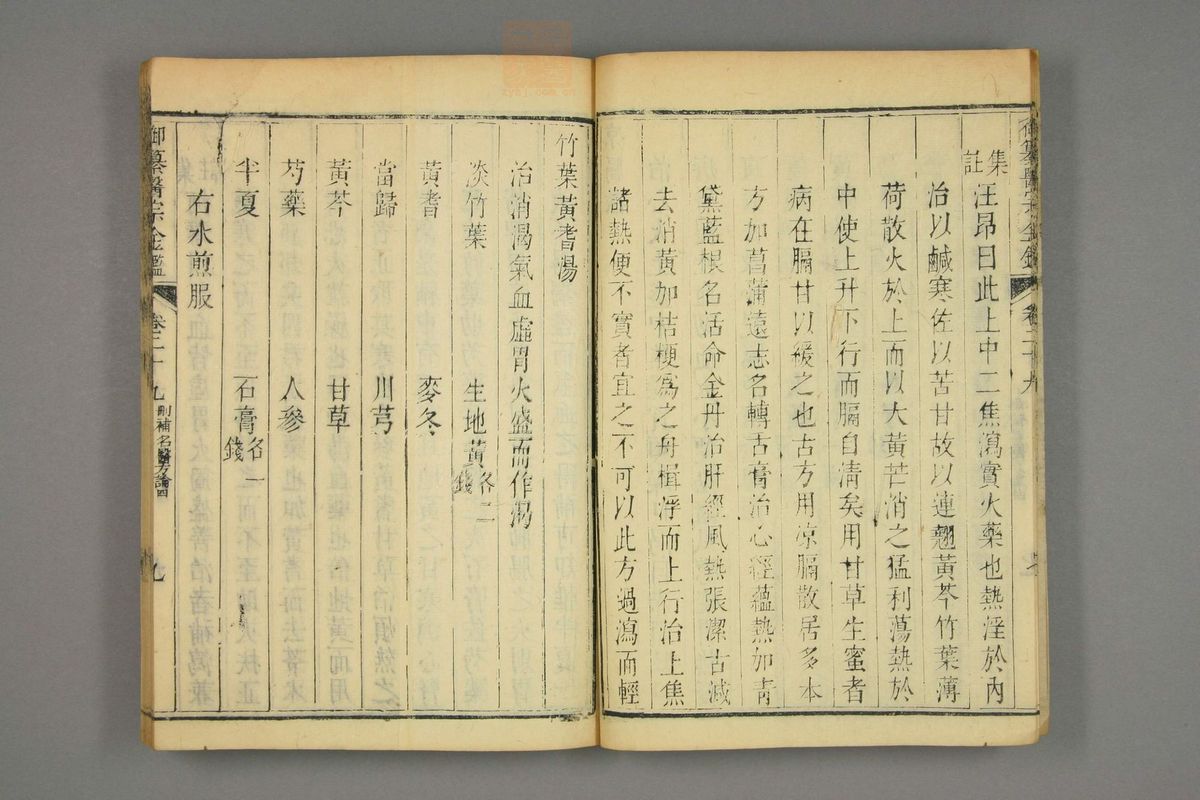 集註 汪昂曰此上中二焦瀉實火藥也熱淫於內
治以鹹寒佐以苦甘故以連翹黃芩竹葉薄
荷散火於上而以大黃芒消之猛利蕩熱於
中使上升下行而膈自清矣用甘草生蜜者
病在膈甘以緩之也古方用凉膈散居多本
方加菖蒲遠志名轉舌膏治心經蘊熱加青
黛藍根名活命金丹治肝經風熱張潔古減
去消黃加桔梗為之舟楫浮而上行治上焦
諸熱便不實者宜之不可以此方過瀉而輕
竹葉黃耆湯
治消渴氣血虛胃火盛而作渴
淡竹葉 生地黃各二錢
黃耆 麥冬
當歸 川芎
黃芩 甘草
芍藥 人參
半夏 石膏各一錢
右水煎服
御纂醫宗金鑑 卷二十九 刪補名醫方論四 七